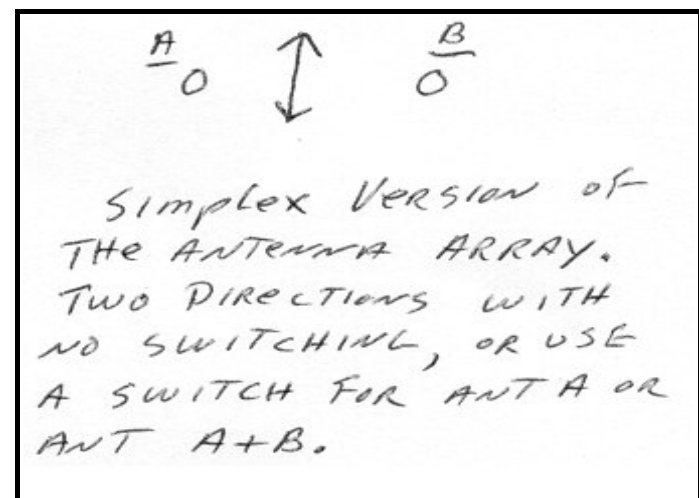 A B
O O
Simplex Version of
THe ANTennA ARRAY.
TWO DIRECTIONS WITH
NO SWITCHING, OR USE
A SWITCH FOR ANT A OR
ANT A+B.